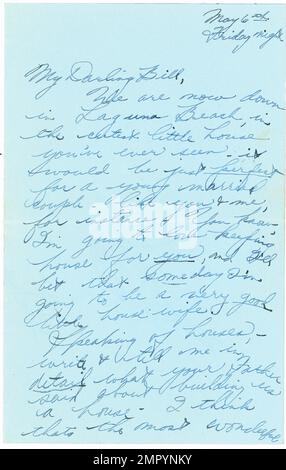 May 6th
Friday night
My Darling Bill,
We are now down
in Laguna Beach, in
the cutest little house
you've ever seen. it
would be just perfect
for a young married
couple like you & me,
for
I'm going to
house for you, and I'll
bet that Someday I'm
going to be a very good
little house wife.
Speaking of houses, -
write & tell me in
detail what your Father
said about building us
a house - I think
thats the most wonderful
alamy
Image ID: 2MPYNKY
www.alamy.com